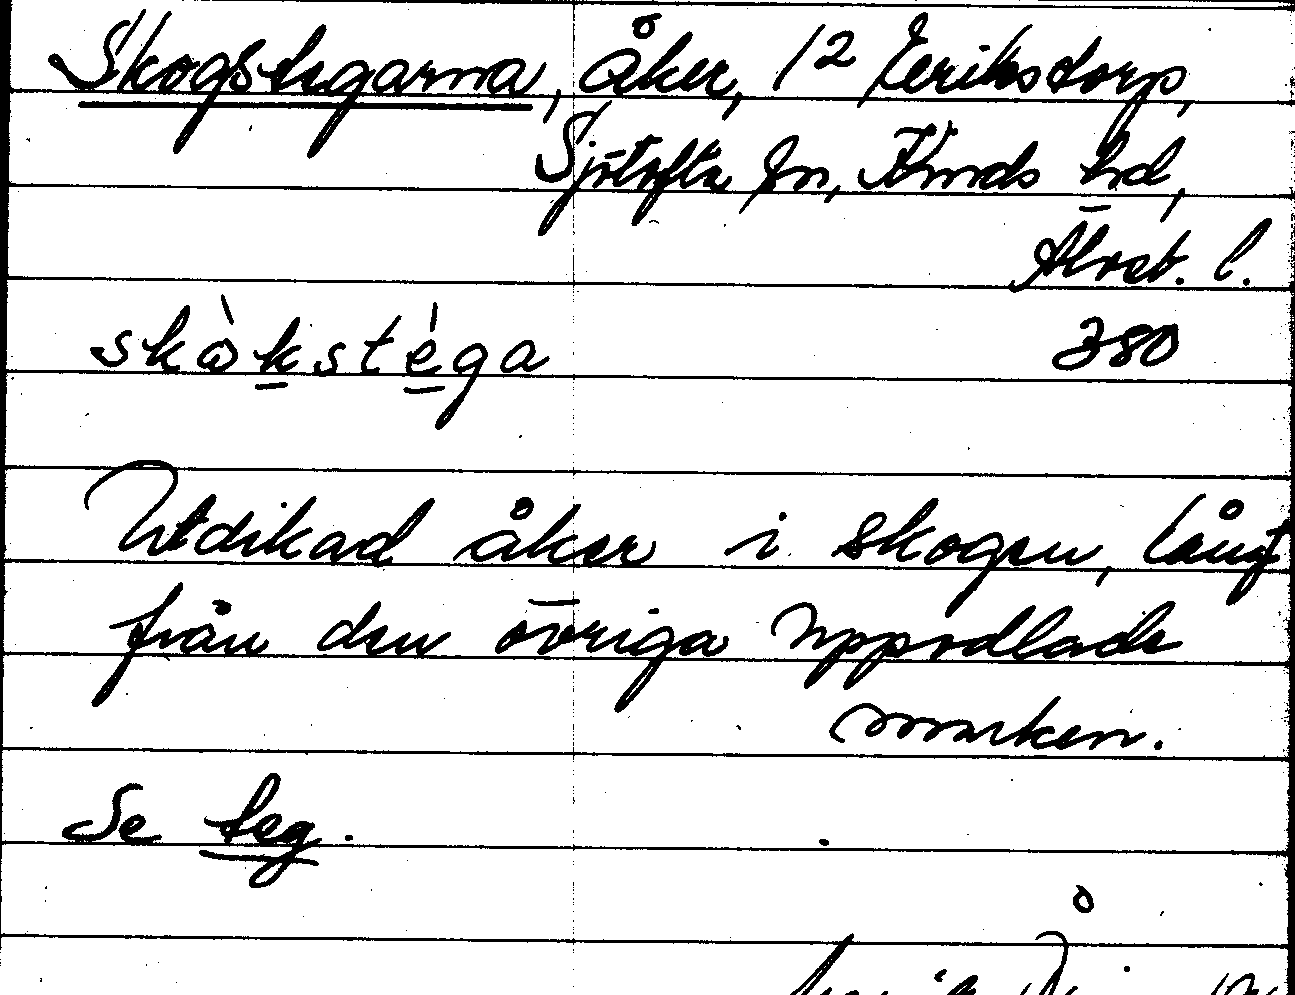 Skogstegarna, åker, 12 Eriksdorp,
Sjötofta sn, Kinds hd,
Älvsb. l.
skò̀kstéga 380
Utdikad åker i skogen, långt
från den övriga uppodlade
marken.
Se teg.